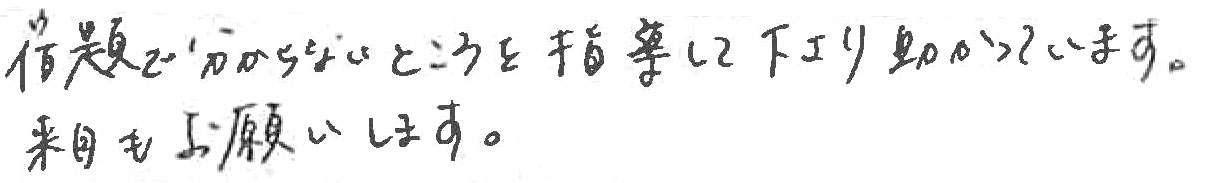 宿題で分からないところを指導して下より助かっています。
来月もお願いします。